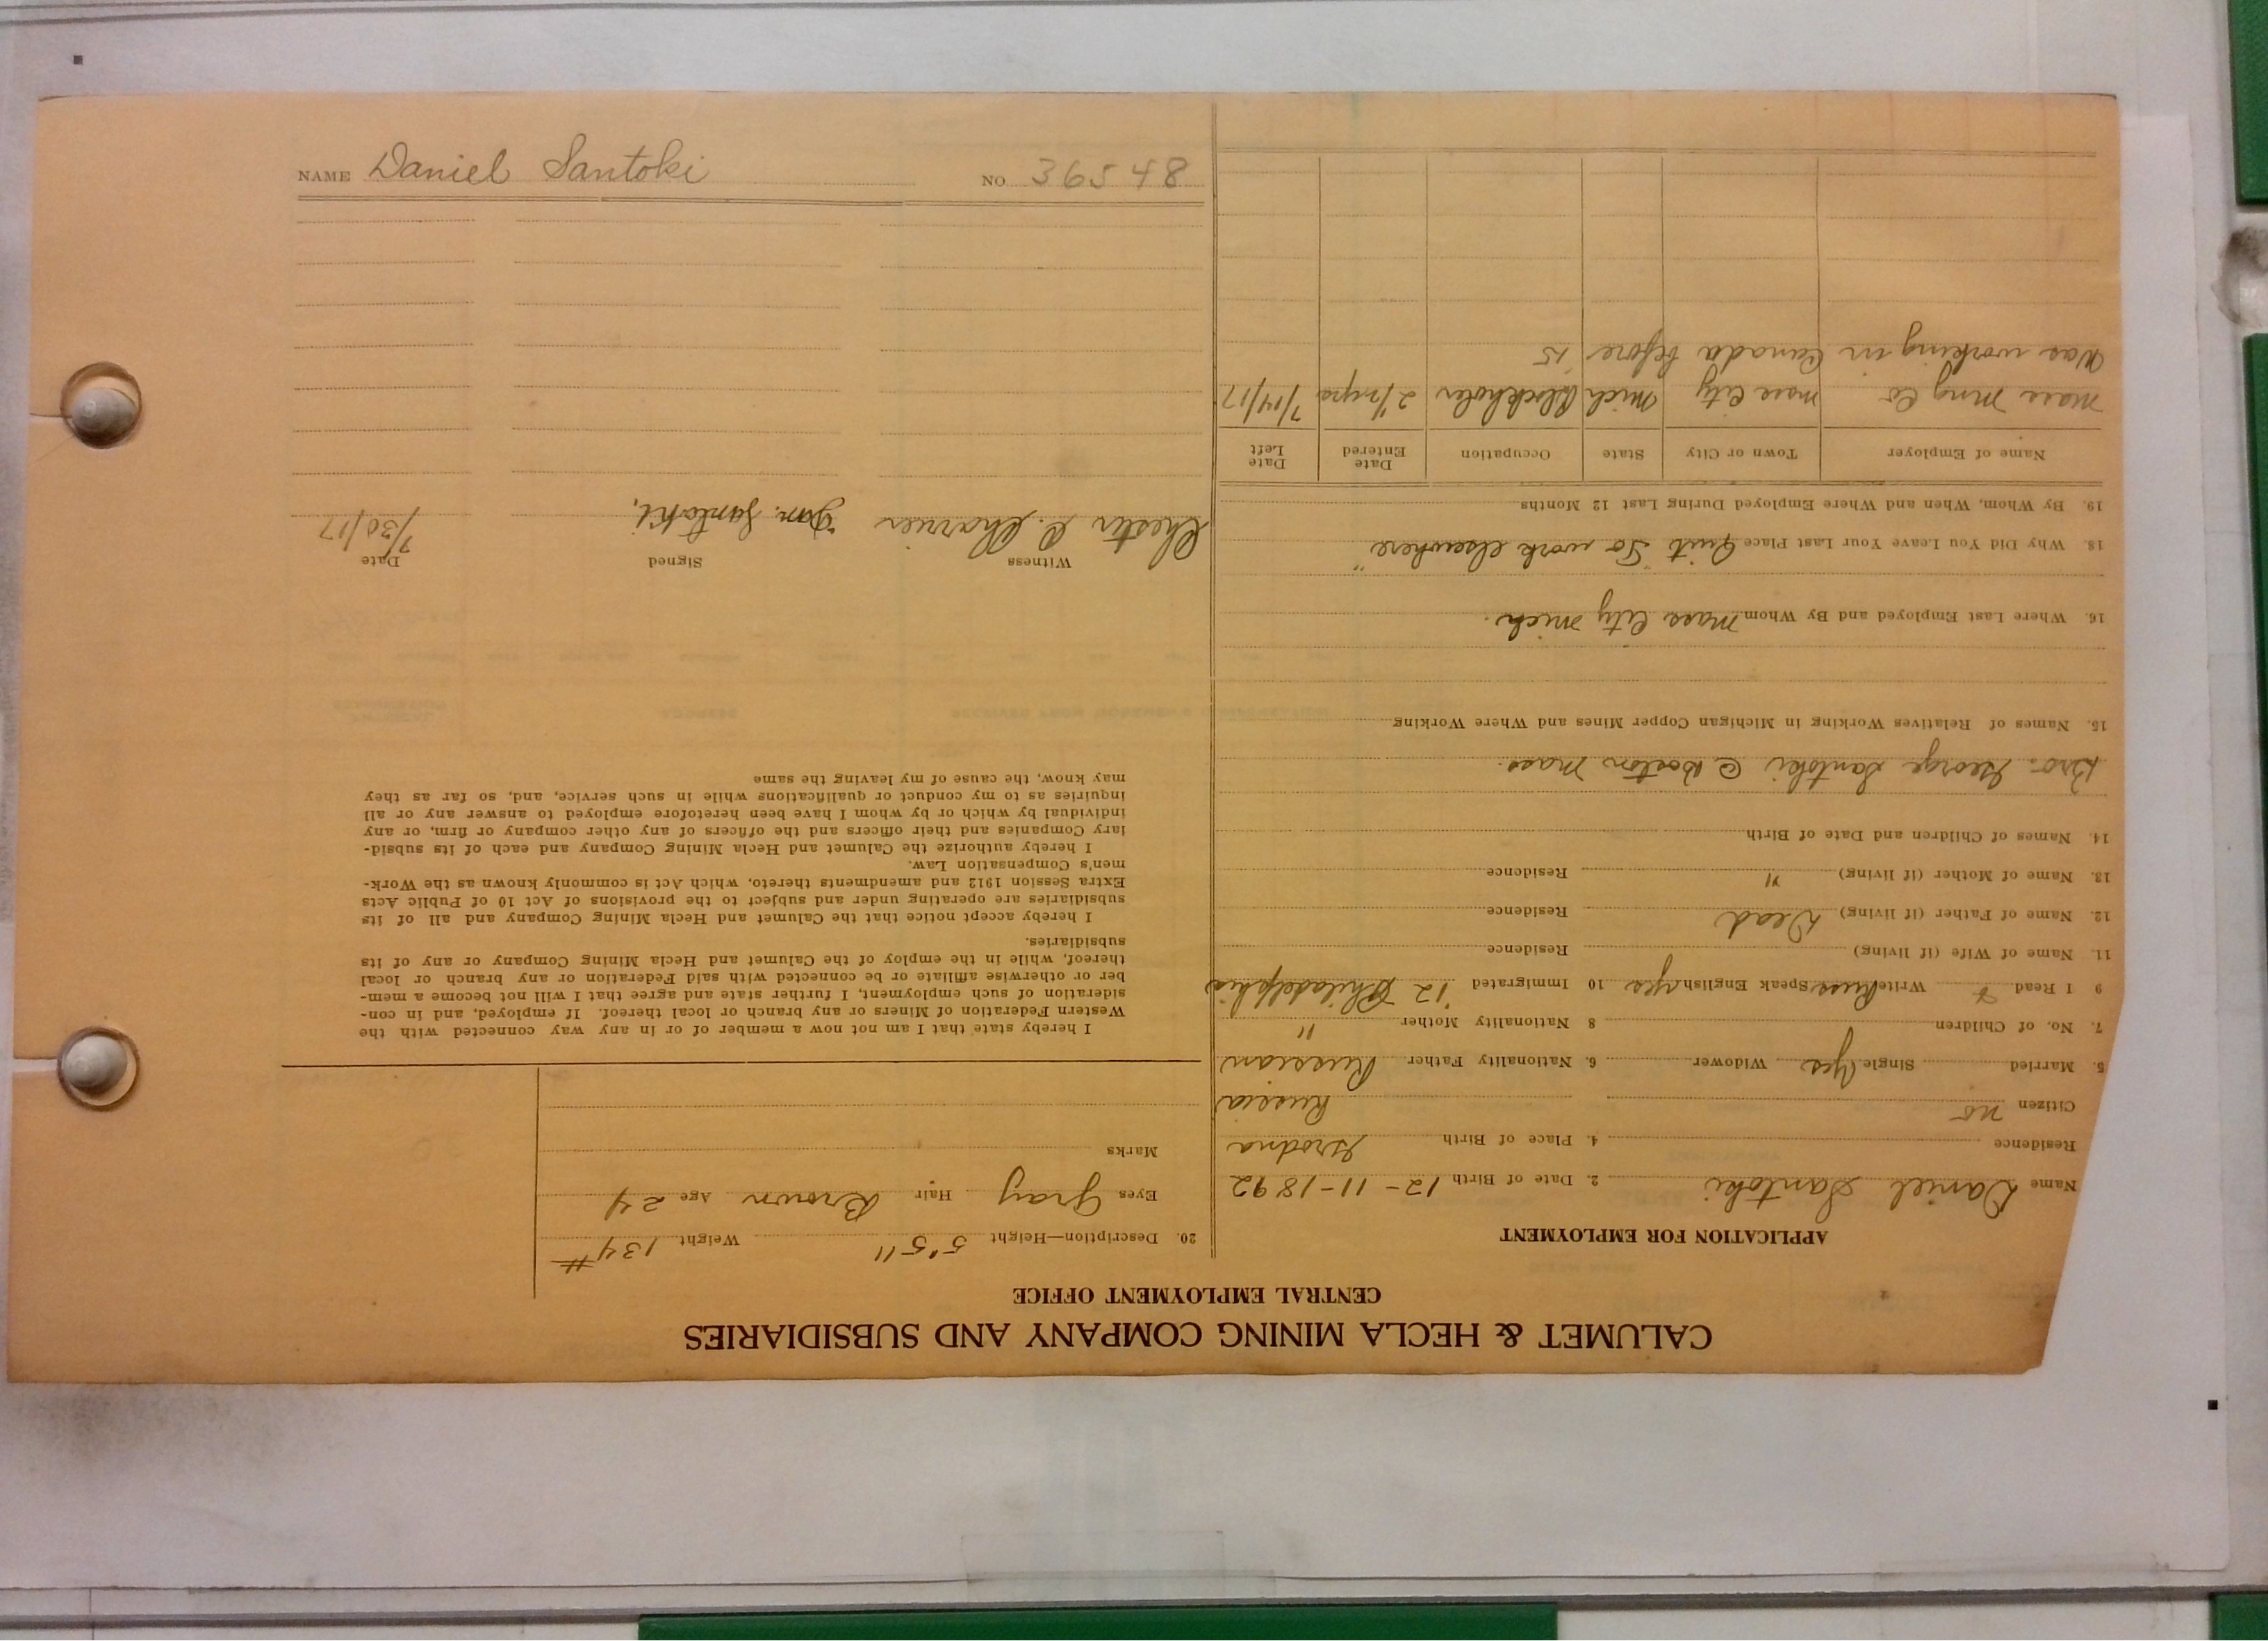 CALUMET & HECLA MINING COMPANY AND SUBSIDIARIES
CENTRAL EMPLOYMENT OFFICE
APPLICATION FOR EMPLOYMENT
Name Daniel Santoki 2. Date of Birth 12-11-1892
Residence 4. Place of Birth Grodna
Citizen no Russia
5. Married Single Yes Widower 6. Nationality Father Russian
7. No. of Children 8 Nationality Mother "
9 I Read & Write Russ Speak English yes 10 Immigrated '12 Philadelphia
11. Name of Wife (if living) Residence
12. Name of Father (if living) Dead Residence
13. Name of Mother (if living) " Residence
14. Names of Children and Date of Birth
Bro. George Santoki @ Boston Mass.
15. Names of Relatives Working in Michigan Copper Mines and Where Working
16. Where Last Employed and By Whom Mass City Mich.
18. Why Did You Leave Your Last Place Quit "To work elsewhere"
19. By Whom, When and Where Employed During Last 12 Months
Name of Employer Town or City State Occupation Date Entered Date Left
Mass Mng Co Mass City Mich Blockholer 2 1/2 yrs 7/14/17
Was working in Canada before '15
20. Description—Height 5'5" Weight 134#
Eyes Gray Hair Brown Age 24
Marks
I hereby state that I am not now a member of or in any way connected with the
Western Federation of Miners or any branch or local thereof. If employed, and in con-
sideration of such employment, I further state and agree that I will not become a mem-
ber or otherwise affiliate or be connected with said Federation or any branch or local
thereof, while in the employ of the Calumet and Hecla Mining Company or any of its
subsidiaries.
I hereby accept notice that the Calumet and Hecla Mining Company and all of its
subsidiaries are operating under and subject to the provisions of Act 10 of Public Acts
Extra Session 1912 and amendments thereto, which Act is commonly known as the Work-
men's Compensation Law.
I hereby authorize the Calumet and Hecla Mining Company and each of its subsid-
iary Companies and their officers and the officers of any other company or firm, or any
individual by which or by whom I have been heretofore employed to answer any or all
inquiries as to my conduct or qualifications while in such service, and, so far as they
may know, the cause of my leaving the same
Witness Signed Date
Chester C. Charrier Dan. Santoki, 7/30/17
NAME Daniel Santoki NO 36548